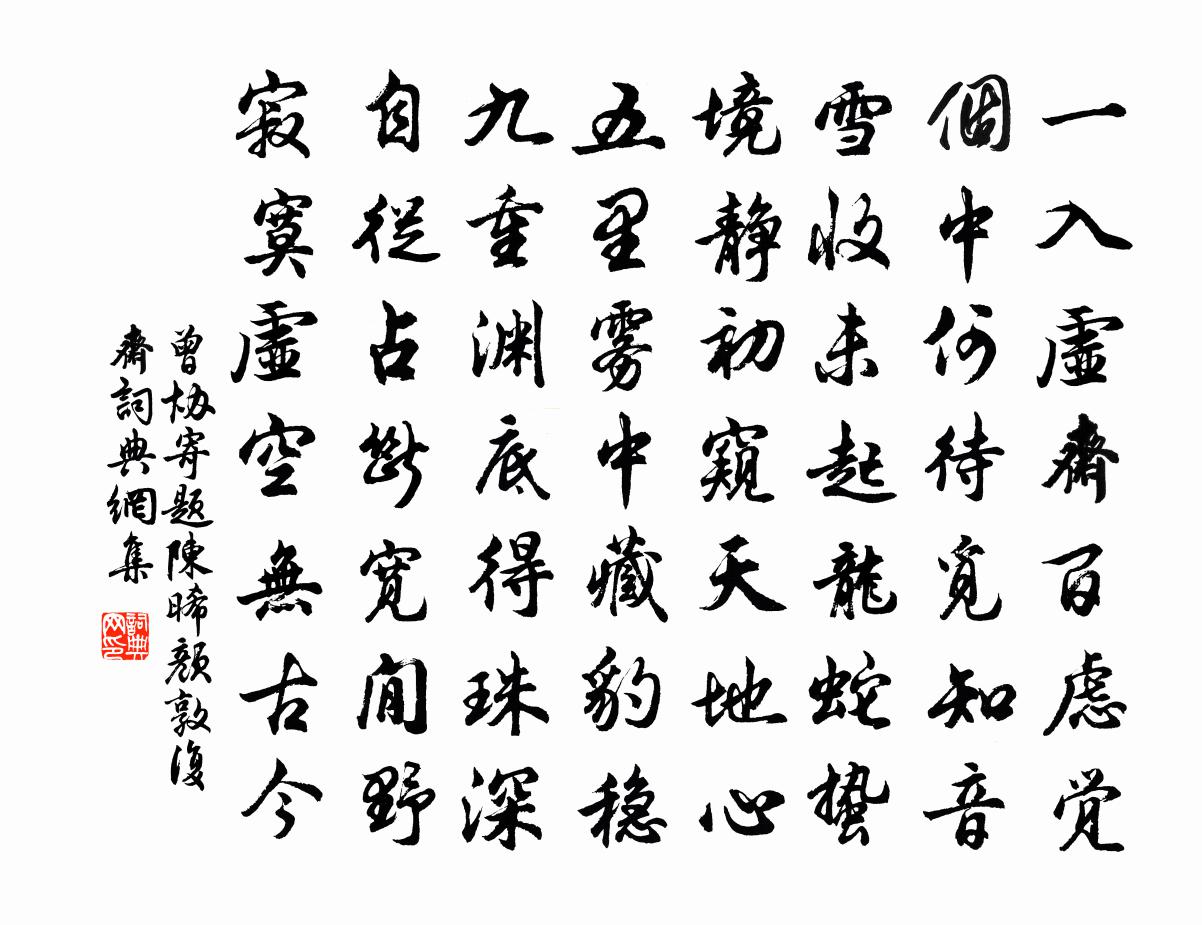 一入虛齋百慮觉
個中何待覓知音
雪收未起龍蛇蟄
境静初窺天地心
五里雾中藏豹稳
九重渊底得珠深
自從占斷寬閒野
寂寞虛空無古今
曾協寄題陳晞顏敦復
齋詞典網集
詞典网印